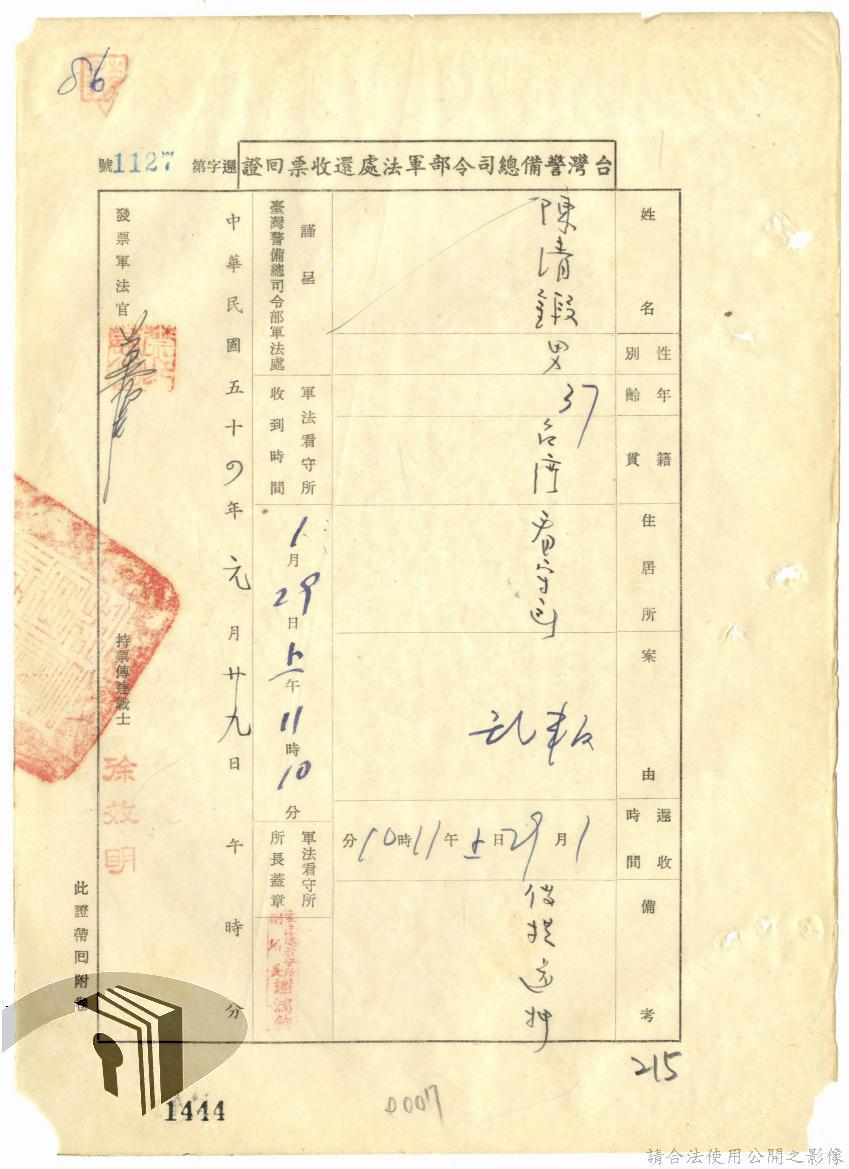 86
台灣警備總司令部軍法處還收票回證
還字第1127號
姓名 陳清鍛
性別 男
年齡 37
籍貫 台灣
住居所 看守所
案由 叛亂
還收時間 1月29日上午11時10分
備考 借提還押
謹呈
臺灣警備總司令部軍法處
軍法看守所收到時間 1月29日上午11時10分
軍法看守所所長蓋章
副所長謝滿
中華民國五十四年元月廿九日 午 時 分
發票軍法官
持票傳達戰士 徐效明
此證帶回附卷
215
1444
0007
請合法使用公開之影像